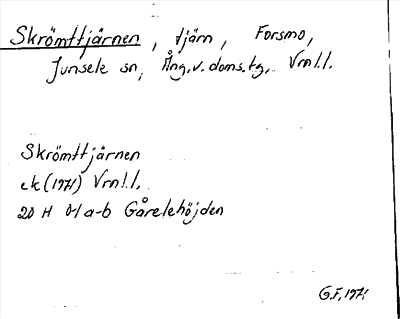 Skrömttjärnen, tjärn, Forsmo,
Junsele sn, Ång.v.doms.tg, Vrnl.l.
Skrömttjärnen
ek (1971) Vrnl.l.
20 H 0-1 a-b Gårelehöjden
G.F. 1971